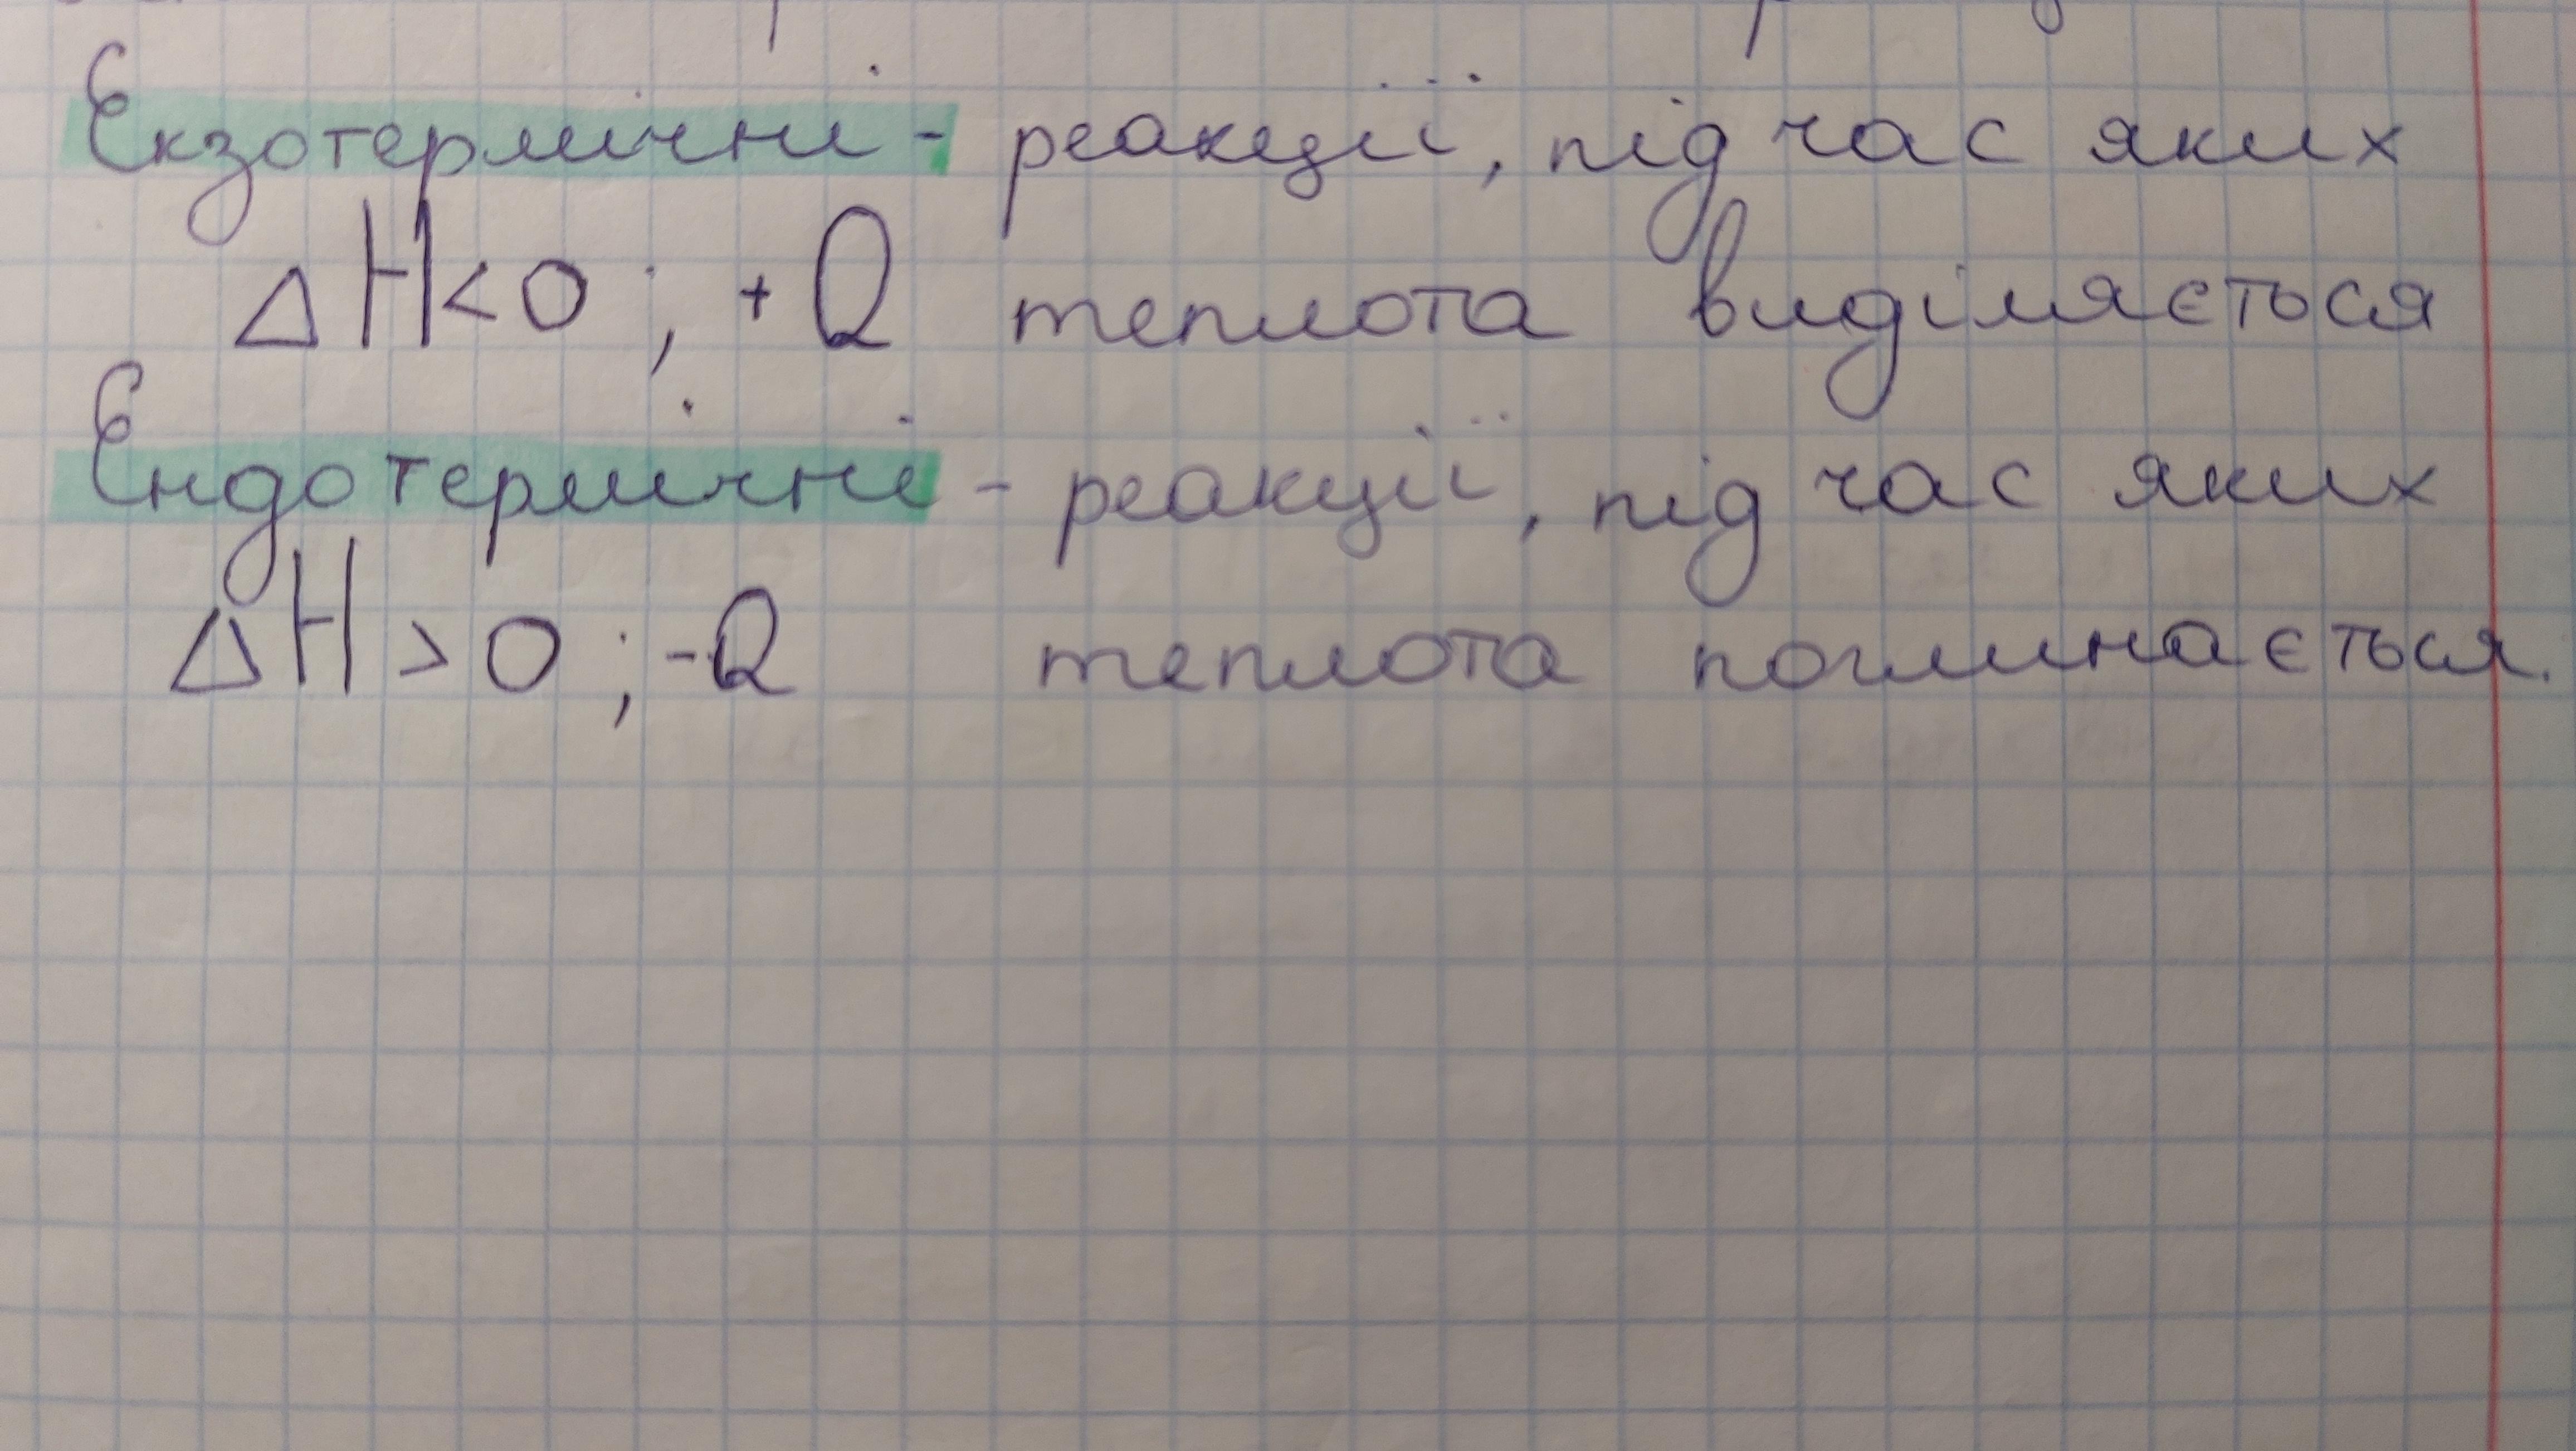 Екзотермічні - реакції, під час яких
ΔH<0 ; +Q теплота виділяється
Ендотермічні - реакції, під час яких
ΔH>0 ; -Q теплота поглинається.